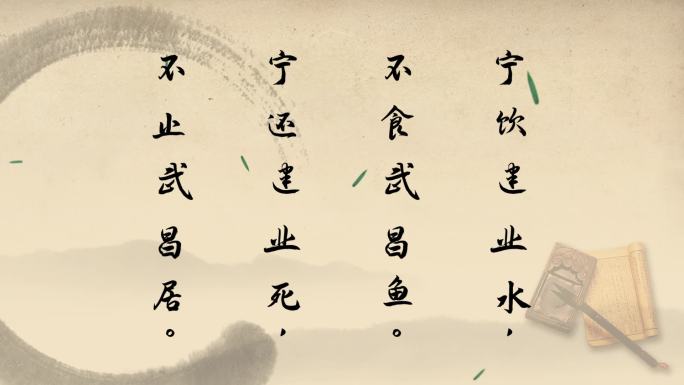 宁饮建业水，
不食武昌鱼。
宁还建业死，
不止武昌居。